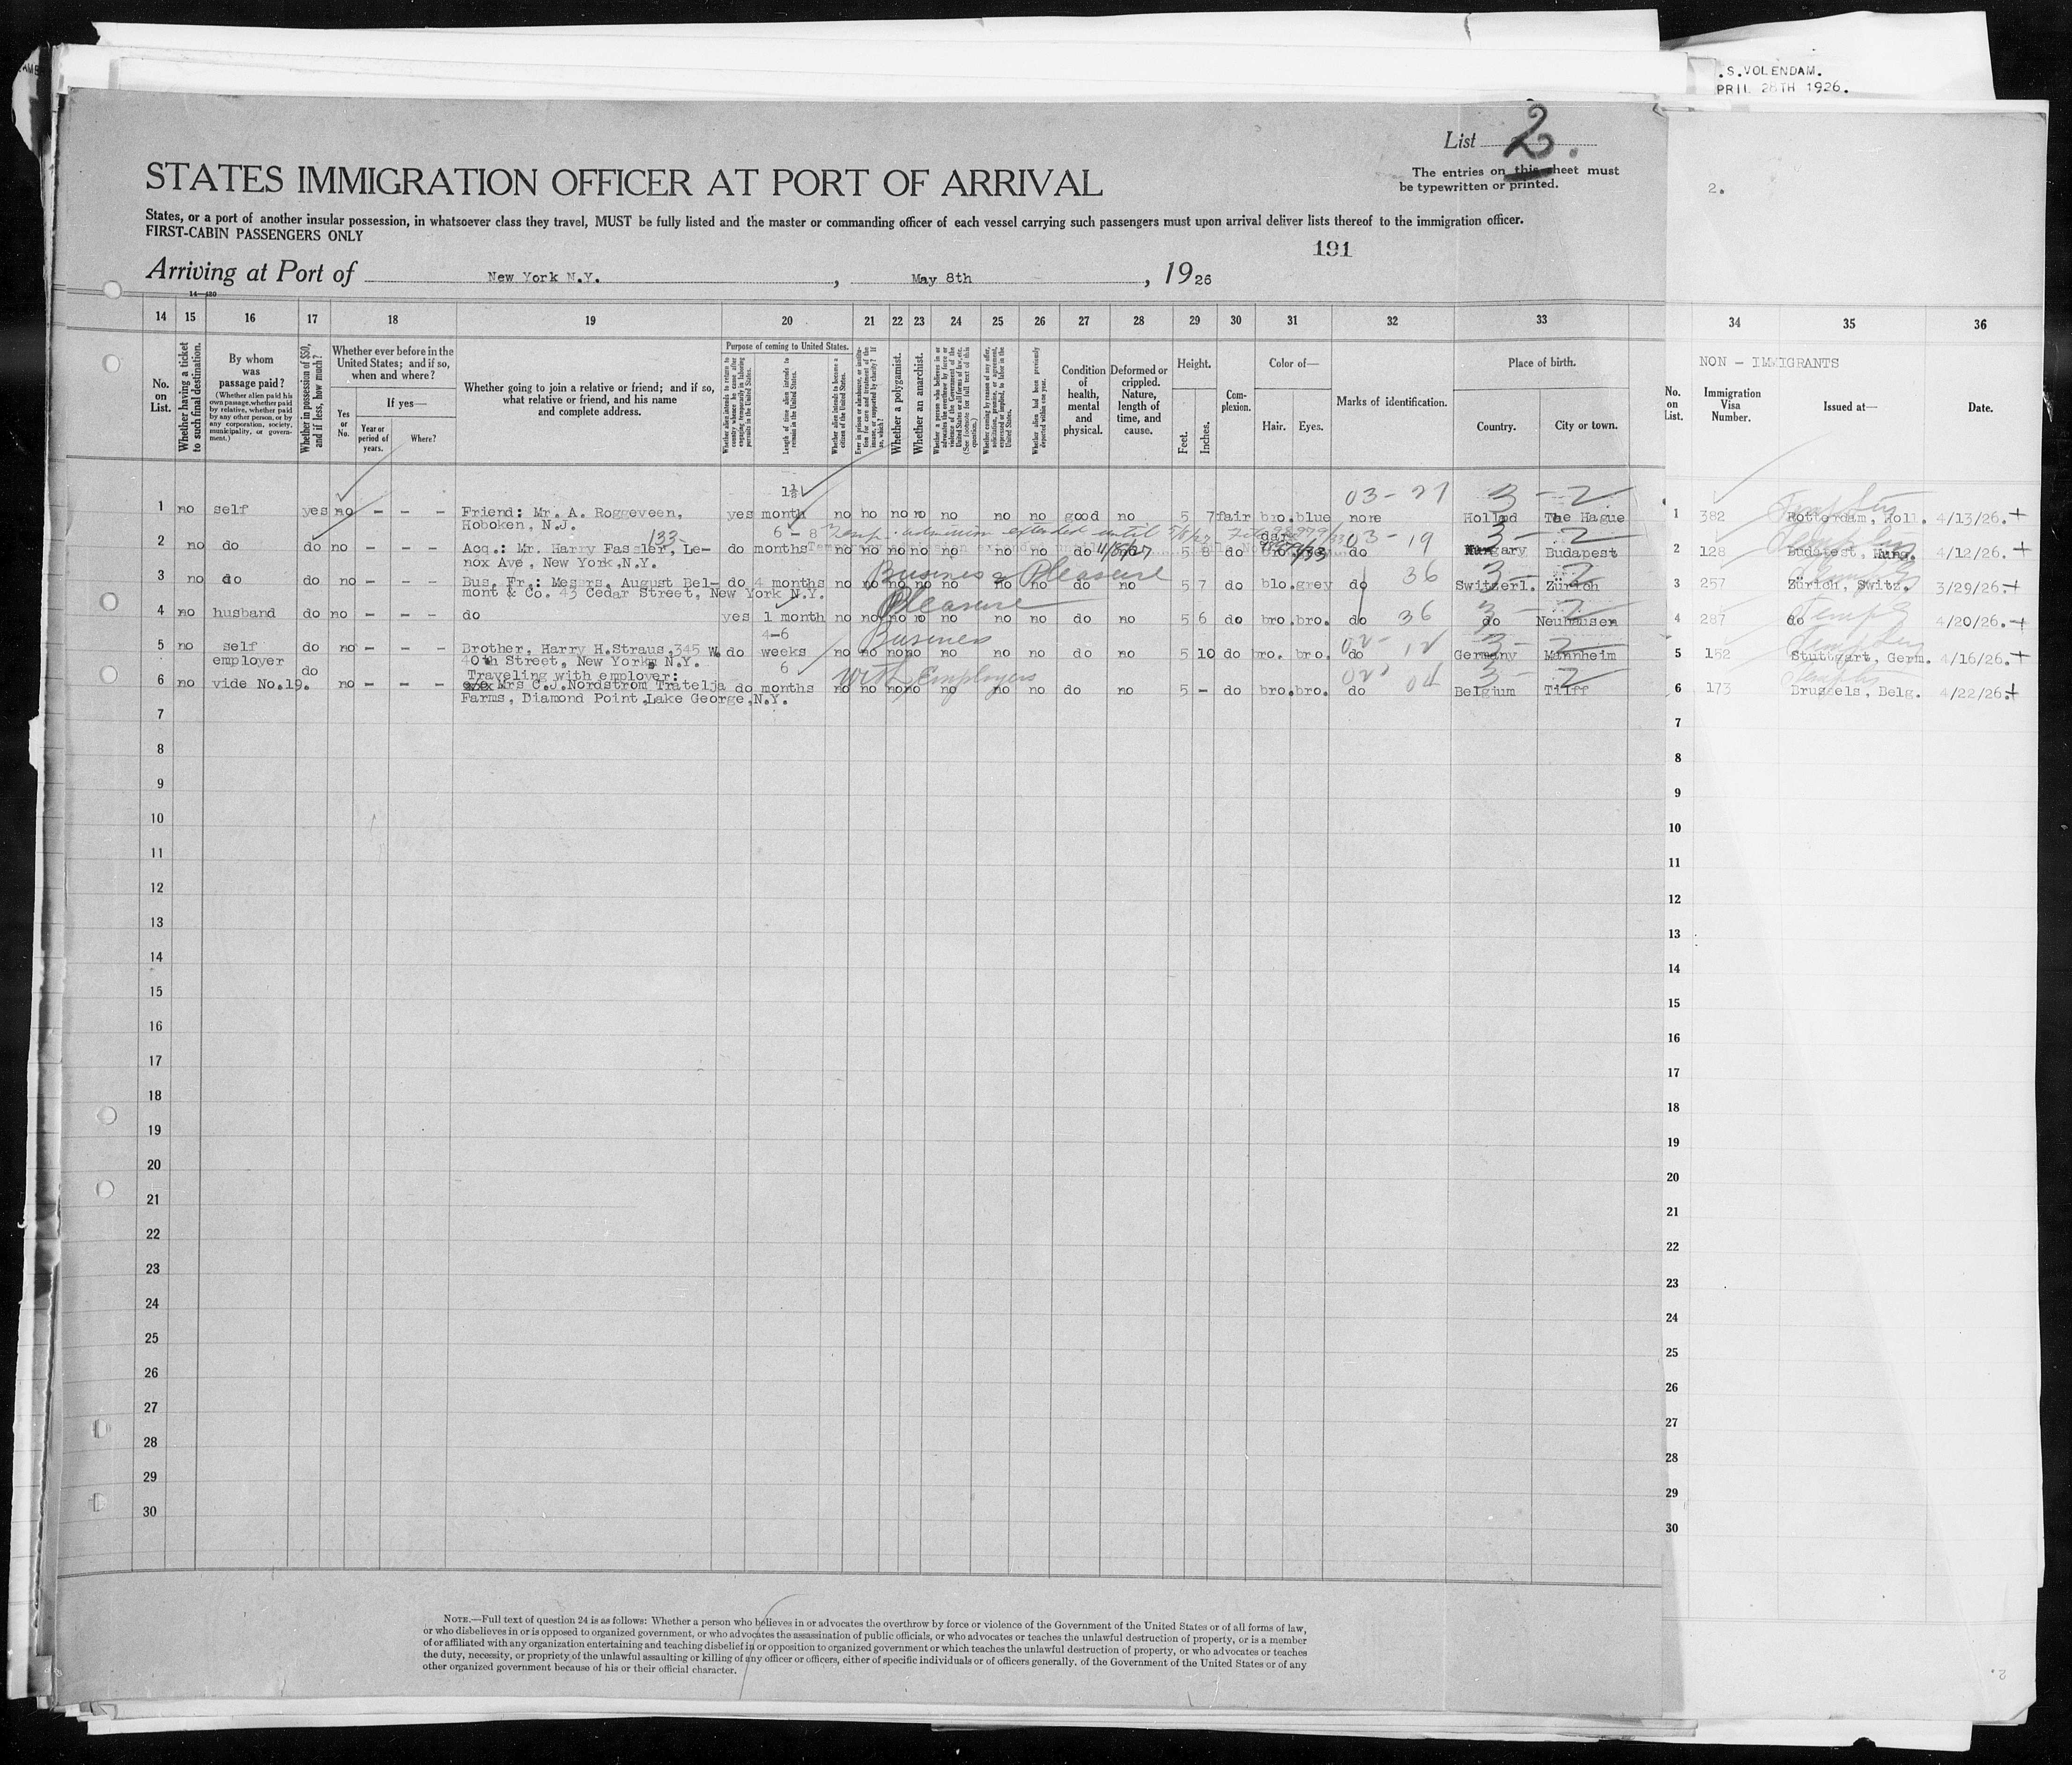 .S.VOLENDAM.
PRIL 28TH 1926.
List 2.
The entries on this sheet must
be typewritten or printed.
2.
STATES IMMIGRATION OFFICER AT PORT OF ARRIVAL
States, or a port of another insular possession, in whatsoever class they travel, MUST be fully listed and the master or commanding officer of each vessel carrying such passengers must upon arrival deliver lists thereof to the immigration officer.
FIRST-CABIN PASSENGERS ONLY
191
Arriving at Port of New York N.Y. , May 8th , 1926
14 15 16 17 18 19 20 21 22 23 24 25 26 27 28 29 30 31 32 33 34 35 36
No. on List.
Whether having a ticket to such final destination.
By whom was passage paid?
(Whether alien paid his own passage, whether paid by relative, whether paid by any other person, or by any corporation, society, municipality, or government.)
Whether in possession of $50, and if less, how much?
Whether ever before in the United States; and if so, when and where?
Yes or No.
If yes—
Year or period of years.
Where?
Whether going to join a relative or friend; and if so, what relative or friend, and his name and complete address.
Purpose of coming to United States.
Whether alien intends to return to country whence he came after engaging temporarily in laboring pursuits in the United States.
Length of time alien intends to remain in the United States.
Whether alien intends to become a citizen of the United States.
Whether a polygamist.
Whether an anarchist.
Condition of health, mental and physical.
Deformed or crippled. Nature, length of time, and cause.
Height.
Feet. Inches.
Complexion.
Color of—
Hair. Eyes.
Marks of identification.
Place of birth.
Country. City or town.
NON - IMMIGRANTS
No. on List.
Immigration Visa Number.
Issued at—
Date.
1½
03-27 3-2
1 no self yes no - - - Friend: Mr. A. Roggeveen, yes month no no no no no no no good no 5 7 fair bro. blue none Holland The Hague 1 382 Rotterdam, Holl. 4/13/26.+
Hoboken, N.J.
133 6 - 8 Temp. admission extended until 03-19 3-2
2 no do do no - - - Acq.: Mr. Harry Fassler, Le- do months no no no no no no no do 5 8 do do Hungary Budapest 2 128 Budapest, Hung. 4/12/26.+
nox Ave, New York,N.Y.
Business & Pleasure 36 3-2
3 no do do no - - - Bus. Fr.: Messrs, August Bel- do 4 months no no no no no no no do no 5 7 do blo. grey do Switzerl. Zürich 3 257 Zürich, Switz. 3/29/26.+
mont & Co. 43 Cedar Street, New York N.Y.
Pleasure 36 3-2
4 no husband do no - - - do yes 1 month no no no no no no no do no 5 6 do bro. bro. do do Neuhausen 4 287 do 4/20/26.+
4-6 Business 02-12 3-2
5 no self do no - - - Brother, Harry H.Straus,345 W. do weeks no no no no no no no do no 5 10 do bro. bro. do Germany Mannheim 5 152 Stuttgart, Germ. 4/16/26.+
40th Street, New York, N.Y.
employer do Traveling with employer: 6 With Employers 04 3-2
6 no vide No.19. no - - - Mrs C.J.Nordstrom Tratelja do months no no no no no no no do no 5 - do bro. bro. do Belgium Tilff 6 173 Brussels, Belg. 4/22/26.+
Farms, Diamond Point,Lake George,N.Y.
7 7
8 8
9 9
10 10
11 11
12 12
13 13
14 14
15 15
16 16
17 17
18 18
19 19
20 20
21 21
22 22
23 23
24 24
25 25
26 26
27 27
28 28
29 29
30 30
NOTE.—Full text of question 24 is as follows: Whether a person who believes in or advocates the overthrow by force or violence of the Government of the United States or of all forms of law,
or who disbelieves in or is opposed to organized government, or who advocates the assassination of public officials, or who advocates or teaches the unlawful destruction of property, or is a member
of or affiliated with any organization entertaining and teaching disbelief in or opposition to organized government or which teaches the unlawful destruction of property, or who advocates or teaches
the duty, necessity, or propriety of the unlawful assaulting or killing of any officer or officers, either of specific individuals or of officers generally, of the Government of the United States or of any
other organized government because of his or their official character.